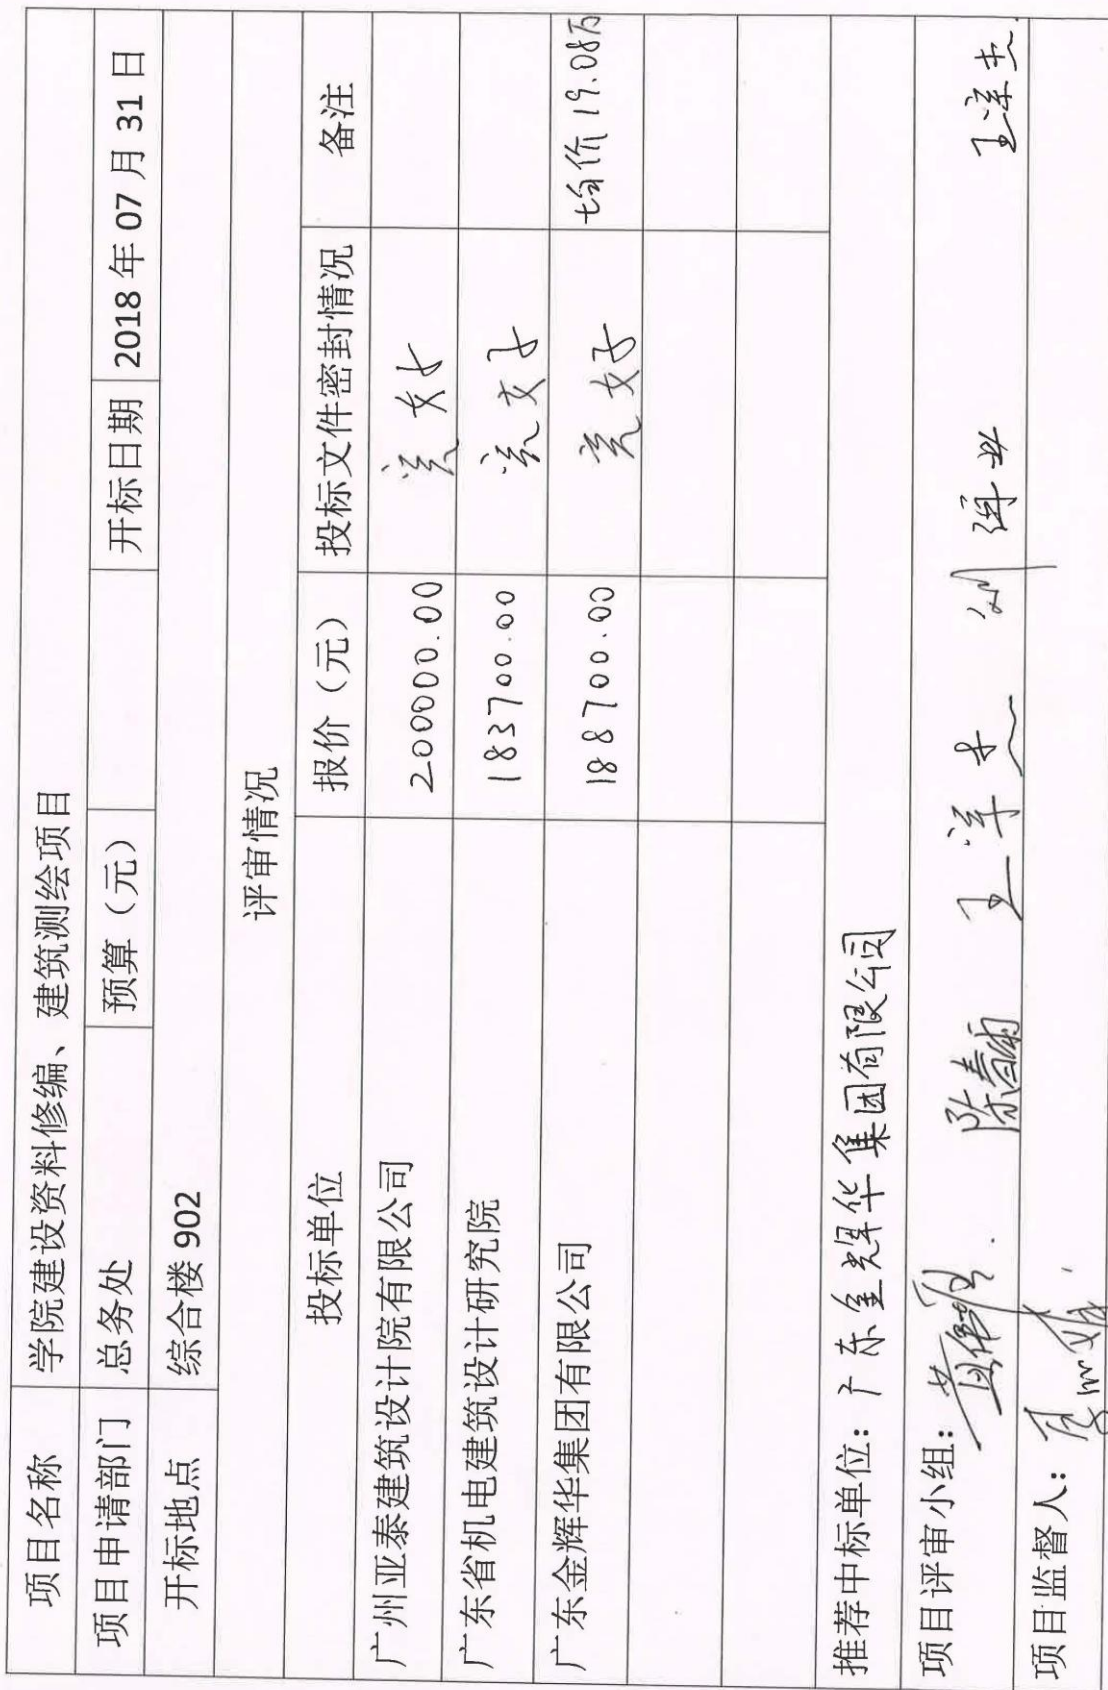 项目名称 学院建设资料修编、建筑测绘项目
项目申请部门 总务处 预算（元） 开标日期 2018 年 07 月 31 日
开标地点 综合楼 902
评审情况
投标单位 报价（元） 投标文件密封情况 备注
广州亚泰建筑设计院有限公司 200000.00 完好
广东省机电建筑设计研究院 183700.00 完好
广东金辉华集团有限公司 188700.00 完好 均价 19.08万
推荐中标单位：广东金辉华集团有限公司
项目评审小组： 陈春雨
项目监督人：